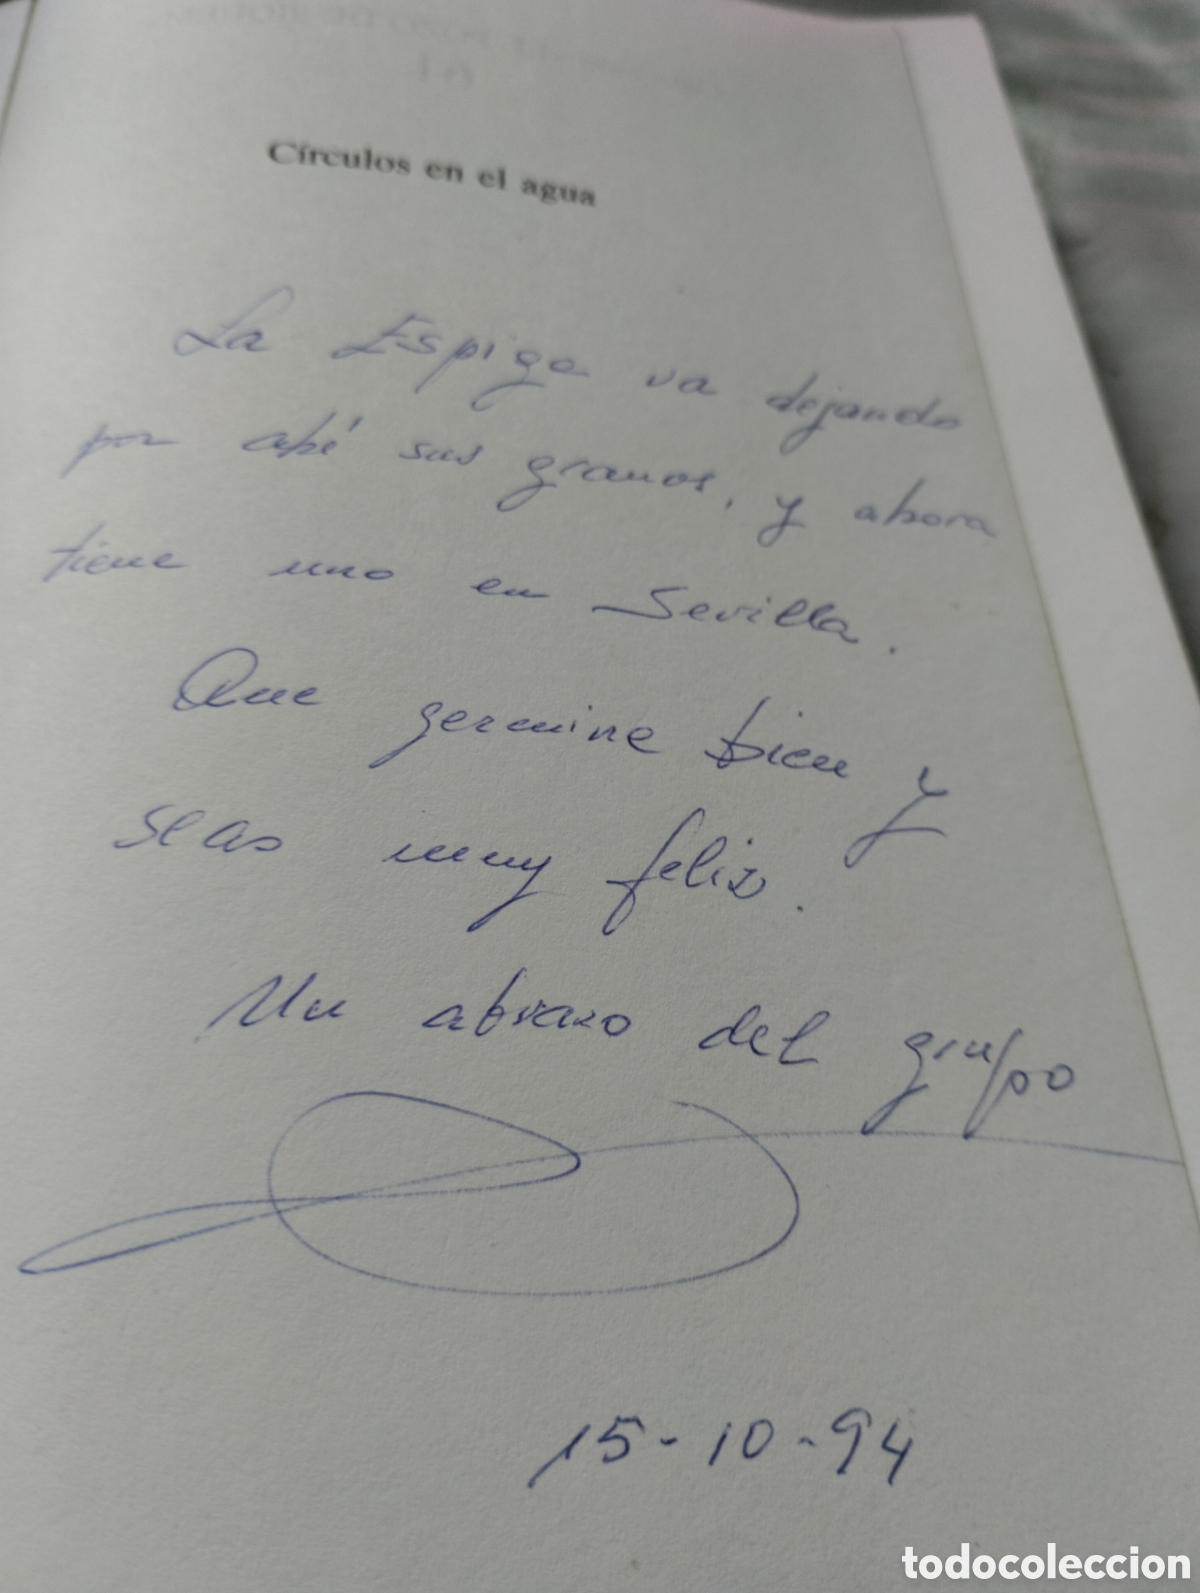 Círculos en el agua
La Espiga va dejando
por ahí sus granos, y ahora
tiene uno en Sevilla.
Que germine bien y
seas muy feliz.
Un abrazo del grupo
15-10-94
todocoleccion